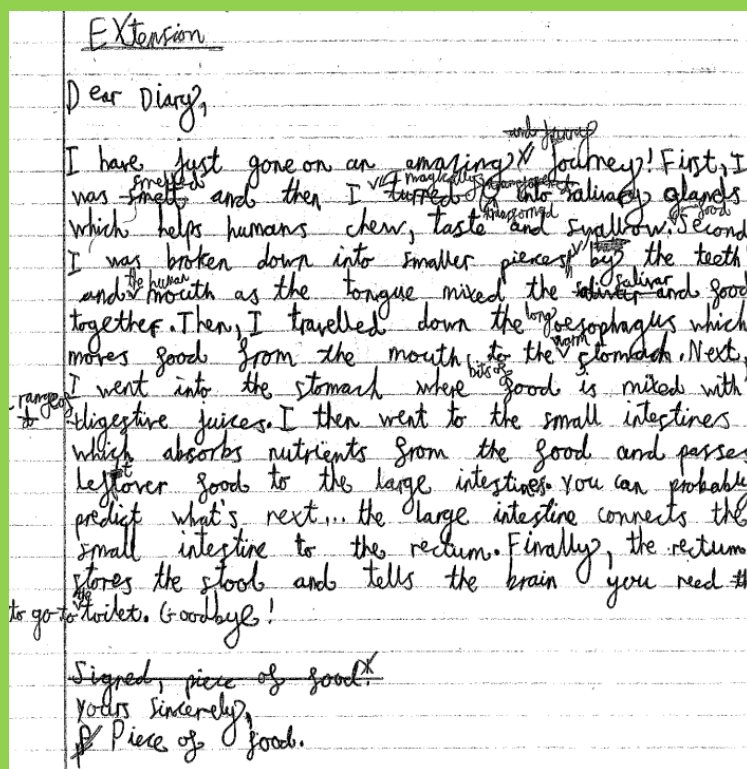 Extension
Dear Diary,
and funny
I have just gone on an amazing journey! First, I
smelted magically
was smelt and then I turned into salivary glands
transformed food
which helps humans chew, taste and swallow. Second
I was broken down into smaller pieces by the teeth
the human salivar
and mouth as the tongue mixed the salivar and food
long
together. Then, I travelled down the oesophagus which
warm
moves food from the mouth to the stomach. Next,
bits of
I went into the stomach where food is mixed with
range of
a digestive juices. I then went to the small intestines
which absorbs nutrients from the food and passes
leftover food to the large intestines. You can probably
predict what's next... the large intestine connects the
small intestine to the rectum. Finally, the rectum
stores the stool and tells the brain you need th
the
to go to toilet. Goodbye!
Signed, piece of food.
Yours Sincerely,
Piece of food.